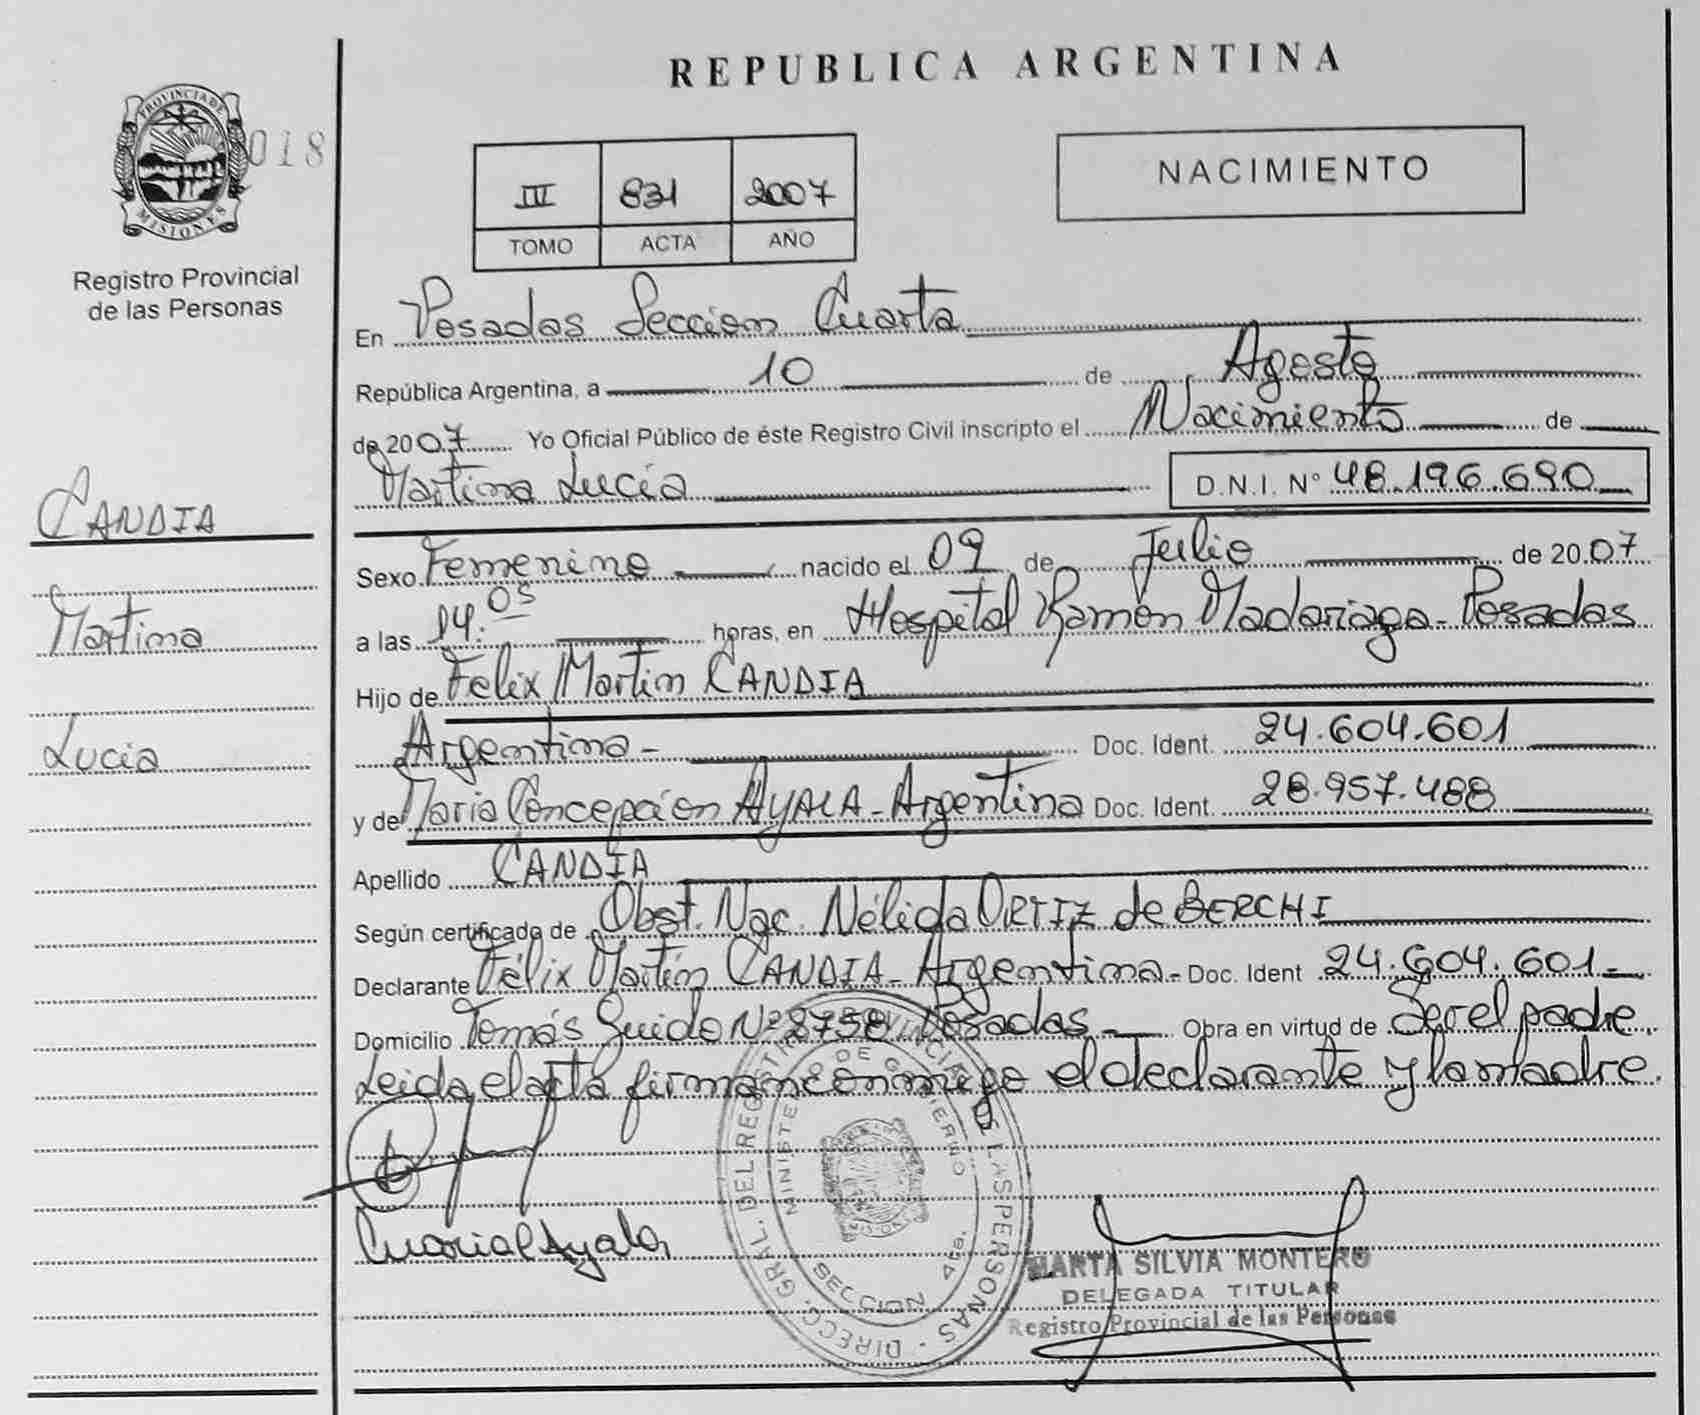 REPUBLICA ARGENTINA
PROVINCIA DE
MISIONES
018
Registro Provincial
de las Personas
III 831 2007
TOMO ACTA AÑO
NACIMIENTO
En Posadas Seccion Cuarta
República Argentina, a 10 de Agosto
de 2007 Yo Oficial Público de éste Registro Civil inscripto el Nacimiento de
Martina Lucía D.N.I. Nº 48.196.690
CANDIA
Martina
Lucia
Sexo Femenino nacido el 09 de Julio de 2007
a las 14:05 horas, en Hospital Ramón Madariaga - Posadas
Hijo de Felix Martin CANDIA
Argentina - Doc. Ident. 24.604.601
y de Maria Concepción AYALA - Argentina Doc. Ident. 28.957.488
Apellido CANDIA
Según certificado de Obst. Nac. Nélida ORTIZ de BERCHI
Declarante Félix Martín CANDIA - Argentina - Doc. Ident 24.604.601 -
Domicilio Tomás Guido Nº 2758 Posadas - Obra en virtud de Ser el padre.
Leida el acta firman conmigo el declarante y la madre.
DIRECC. GRAL. DEL REGISTRO PROVINCIAL DE LAS PERSONAS
MINISTERIO DE GOBIERNO
SECCION 4ta.
MARTA SILVIA MONTERO
DELEGADA TITULAR
Registro Provincial de las Personas